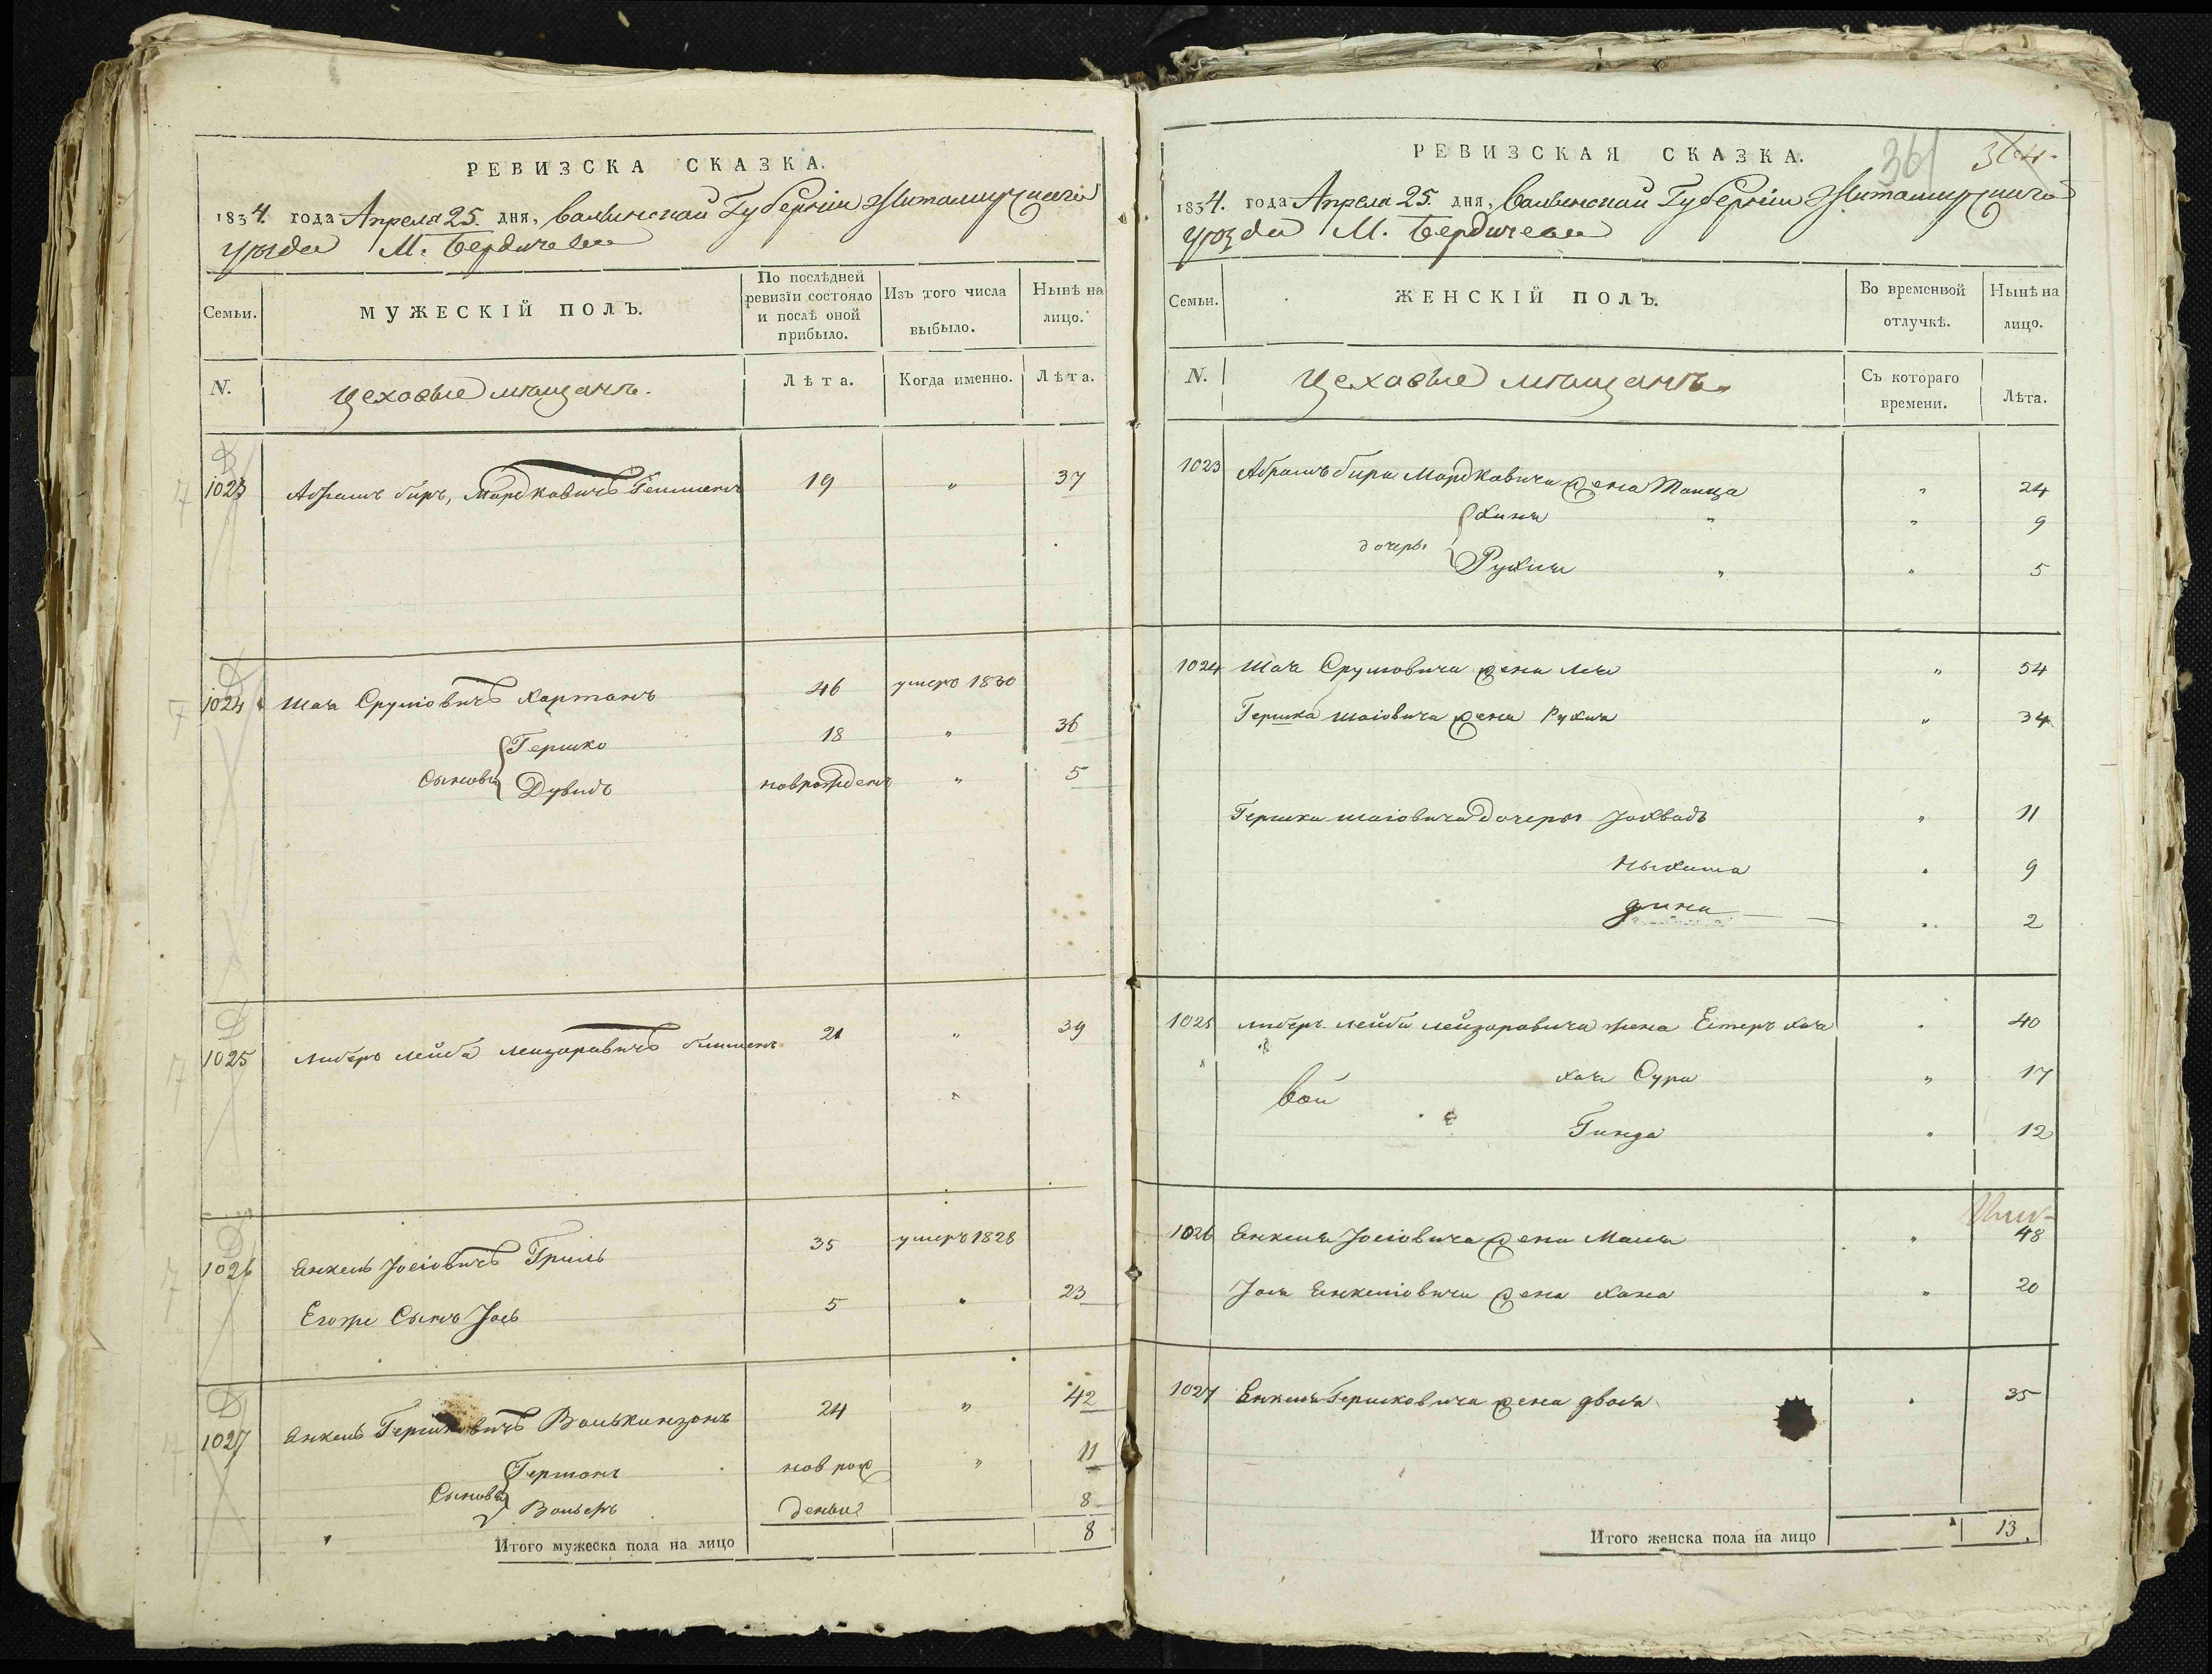 РЕВИЗСКА СКАЗКА.
1834. года Апреля 25. дня, Волынской Губернiи Житомирского
уѣзда М. Бердичева
Семьи.
МУЖЕСКIЙ ПОЛЪ.
По послѣдней
ревизiи состояло
и послѣ оной
прибыло.
Изъ того числа
выбыло.
Нынѣ на
лицо.
N.
цеховые мѣщанъ.
Лѣта.
Когда именно.
Лѣта.
1023 Абрамъ Биръ, Мордковичъ 19 " 37
1024 Шая Срулiовичъ Хартанъ 46 умеръ 1830
Гершко 18 " 36
Сыновья Дувидъ новрожденъ " 5
1025 Либеръ Лейба Лейзоровичъ 21 " 39
"
1026 Енкель Iосiовичъ Гриль 35 умеръ 1828
Егоже Сынъ Iось 5 " 23
1027 Енкель Гершковичъ Волькинзонъ 24 " 42
Германъ нов рож " 11
Сыновья
Вольеръ деные 8
Итого мужеска пола на лицо 8
РЕВИЗСКАЯ СКАЗКА.
361 364
1834. года Апреля 25. дня, Волынской Губернiи Житомирского
уѣзда М. Бердичева
Семьи.
ЖЕНСКIЙ ПОЛЪ.
Во временной
отлучкѣ.
Нынѣ на
лицо.
N.
цеховые мѣщанъ.
Съ котораго
времени.
Лѣта.
1023 Абрамъ Бира Мордковича жена Тауба " 24
Хина " " 9
дочеры
Рухля " " 5
1024 Шая Срулiовича жена Лея " 54
Гершка Шаiовича жена Рухля " 34
Гершка Шаiовича дочеры Iохвадъ " 11
Ныхама " 9
дина " 2
1025 Либеръ Лейби Лейзоровича жена Естеръ Хая " 40
" Хая Сура " 17
вой
Гинда " 12
1026 Енкеля Iосiовича жена Маля " 48
Iося Енкелiовича жена Хана " 20
1027 Енкеля Гершковича жена двося " 35
Итого женска пола на лицо 13.